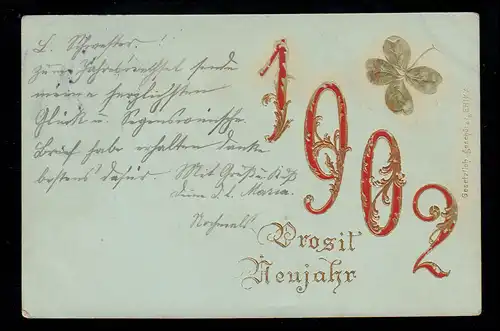 L. Schwester!
zum Jahreswechsel sende
meine herzlichsten
Glück u. Segenswünsche.
Brief habe erhalten danke
bestens dafür. Mit Gruß u. Kuß
Deine l. Maria.
Nochmals
1902
Prosit
Neujahr
Gesetzlich Geschützt